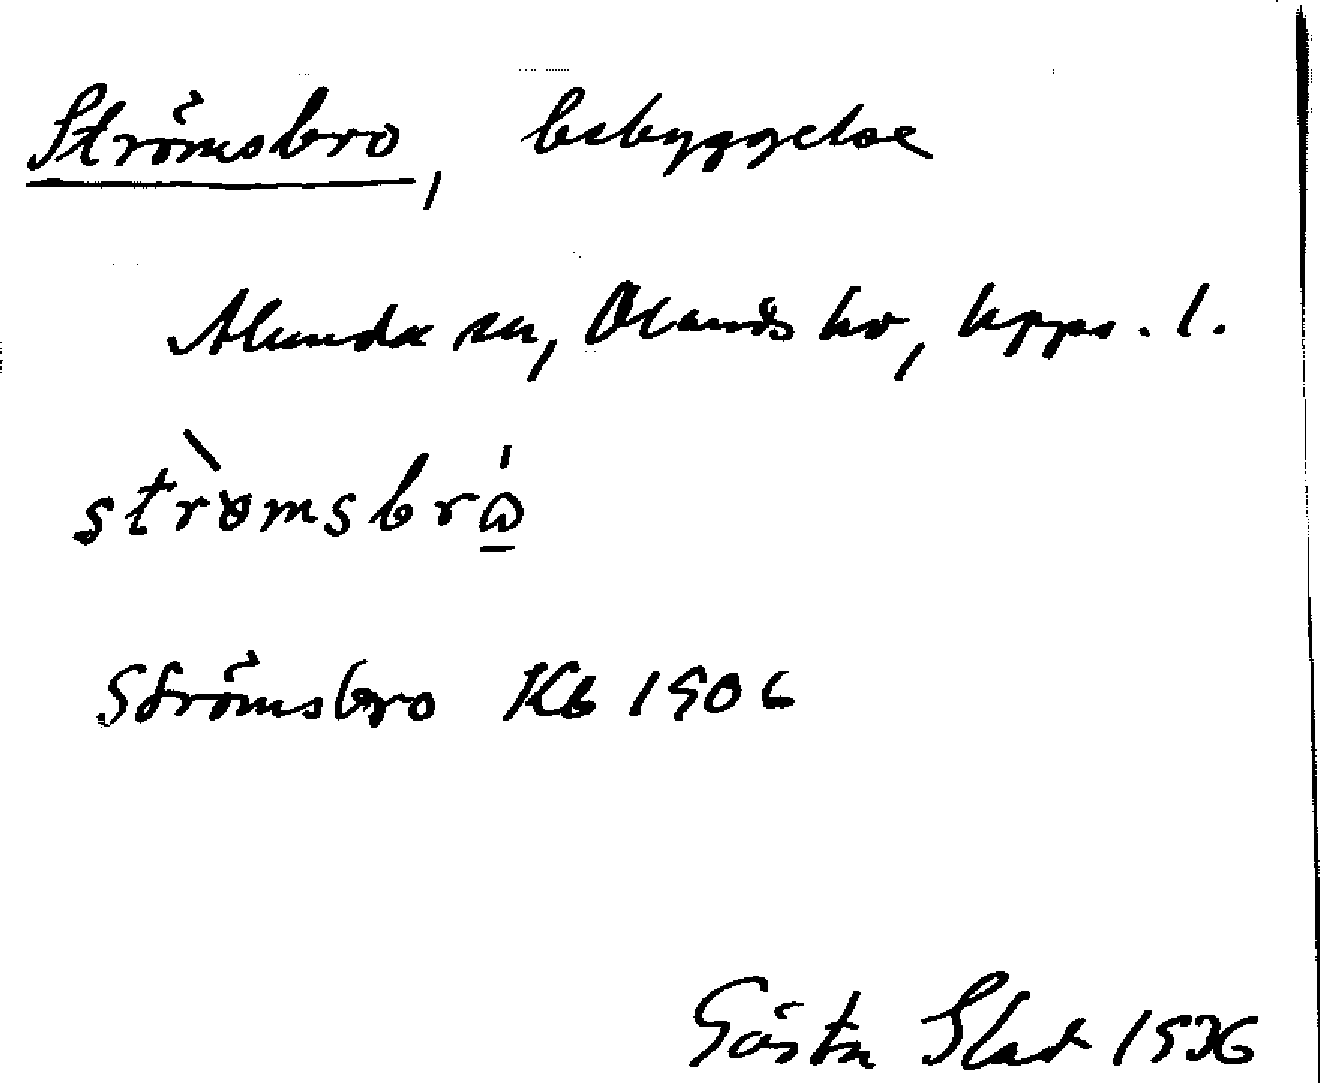 Strömsbro, bebyggelse
Alunda sn, Olands hd, Upps. l.
strömsbrω
Strömsbro Kb 1906
Gösta Slad 1936